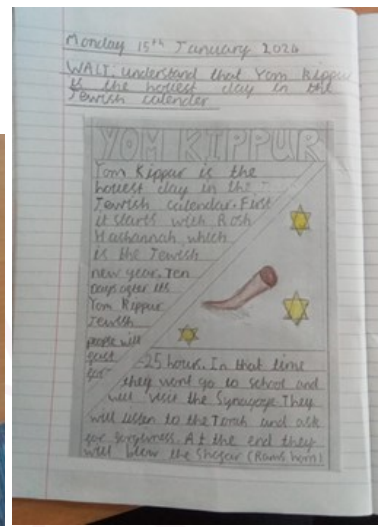 Monday 15th January 2024
WALT: understand that Yom Kippur
is the holiest day in the
Jewish calender
YOM KIPPUR
Yom Kippur is the
holiest day in the
Jewish calendar. First
it starts with Rosh
Hashannah which
is the Jewish
new year. Ten
days after its
Yom Kippur
Jewish
people will
fast
for 25 hours. In that time
they wont go to school and
will visit the Synagoge. They
will listen to the Torah and ask
for forgivness. At the end they
will blow the Shofar (Rams horn)